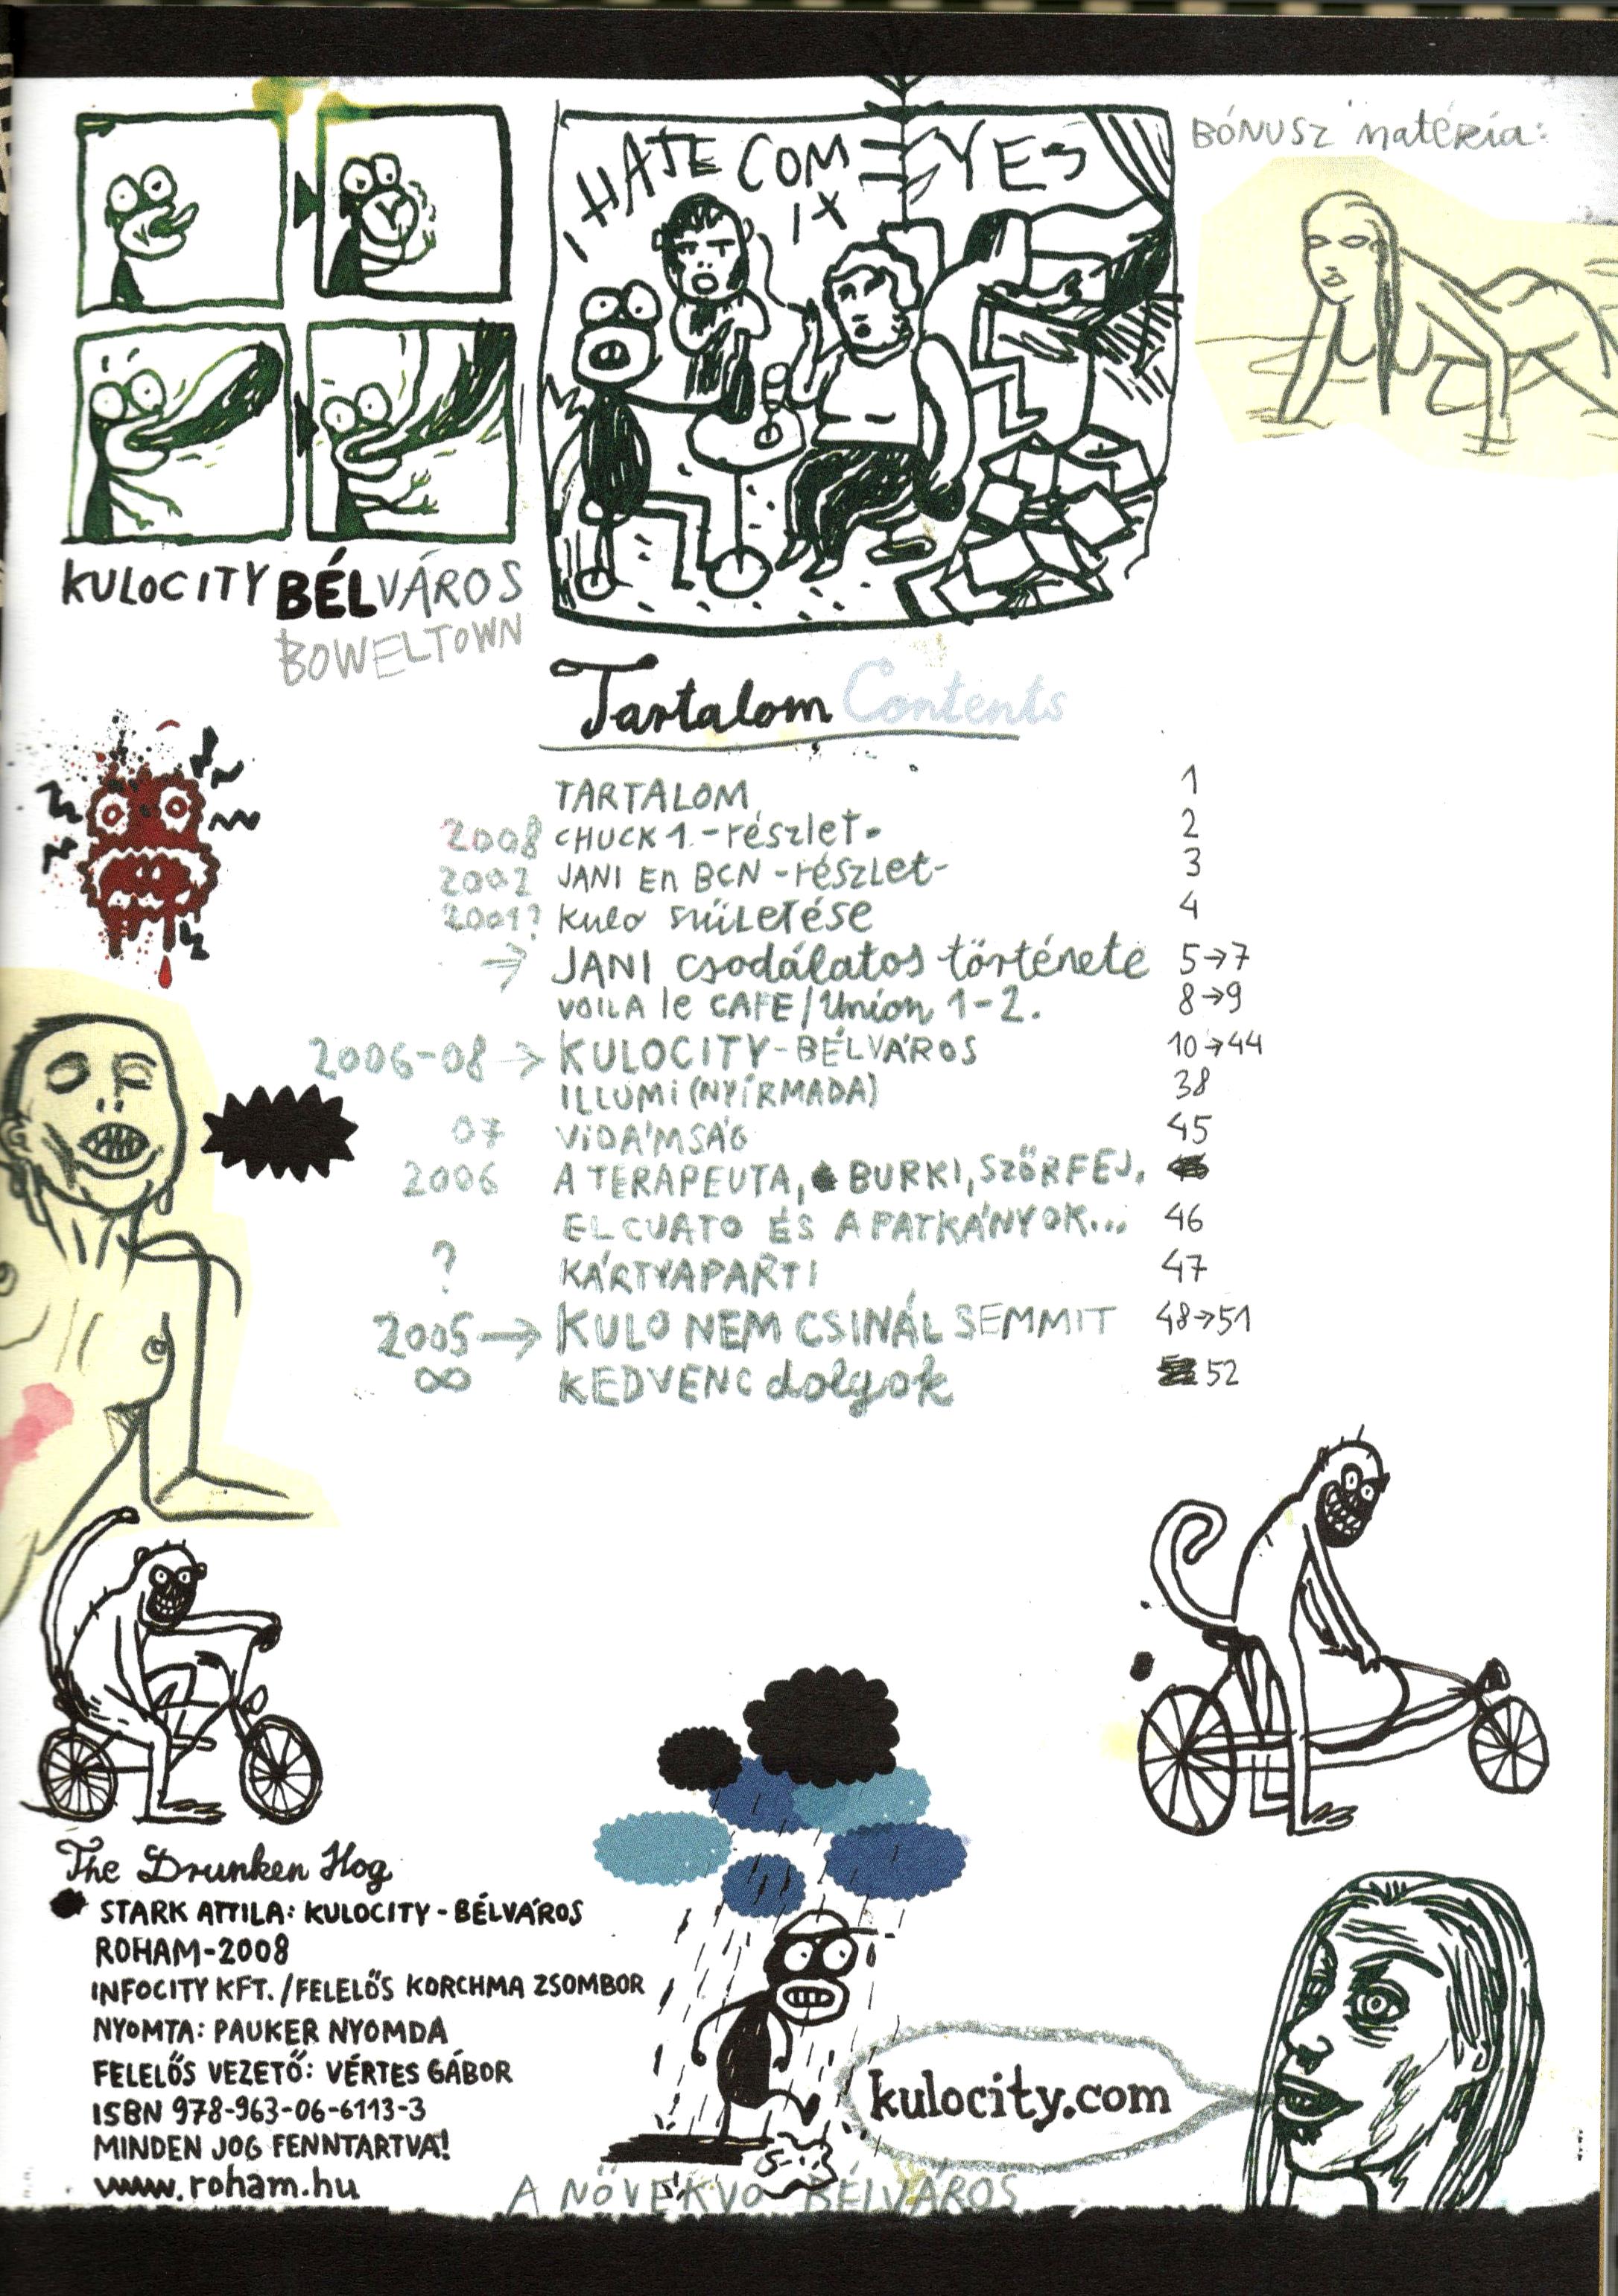 I HATE COM
IX
YES
BÓNUSZ matéria:
KULOCITY BÉLVÁROS
BOWELTOWN
Tartalom Contents
TARTALOM 1
2008 CHUCK 1.-részlet- 2
2002 JANI En BCN -részlet- 3
2001? Kulo születése 4
→ JANI csodálatos története 5→7
VOILA le CAFE/Union 1-2. 8→9
2006-08 → KULOCITY-BÉLVÁROS 10→44
ILLUMI (NYÍRMADA) 38
07 VIDÁMSÁG 45
2006 A TERAPEUTA, BURKI, SZŐRFEJ,
EL CUATO ÉS A PATKÁNYOK... 46
? KÁRTYAPARTI 47
2005 → KULO NEM CSINÁL SEMMIT 48→51
∞ KEDVENC dolgok 52
The Drunken Hog
STARK ATTILA: KULOCITY-BÉLVÁROS
ROHAM-2008
INFOCITY KFT./FELELŐS KORCHMA ZSOMBOR
NYOMTA: PAUKER NYOMDA
FELELŐS VEZETŐ: VÉRTES GÁBOR
ISBN 978-963-06-6113-3
MINDEN JOG FENNTARTVA!
www.roham.hu
kulocity.com
A NÖVEKVŐ BÉLVÁROS